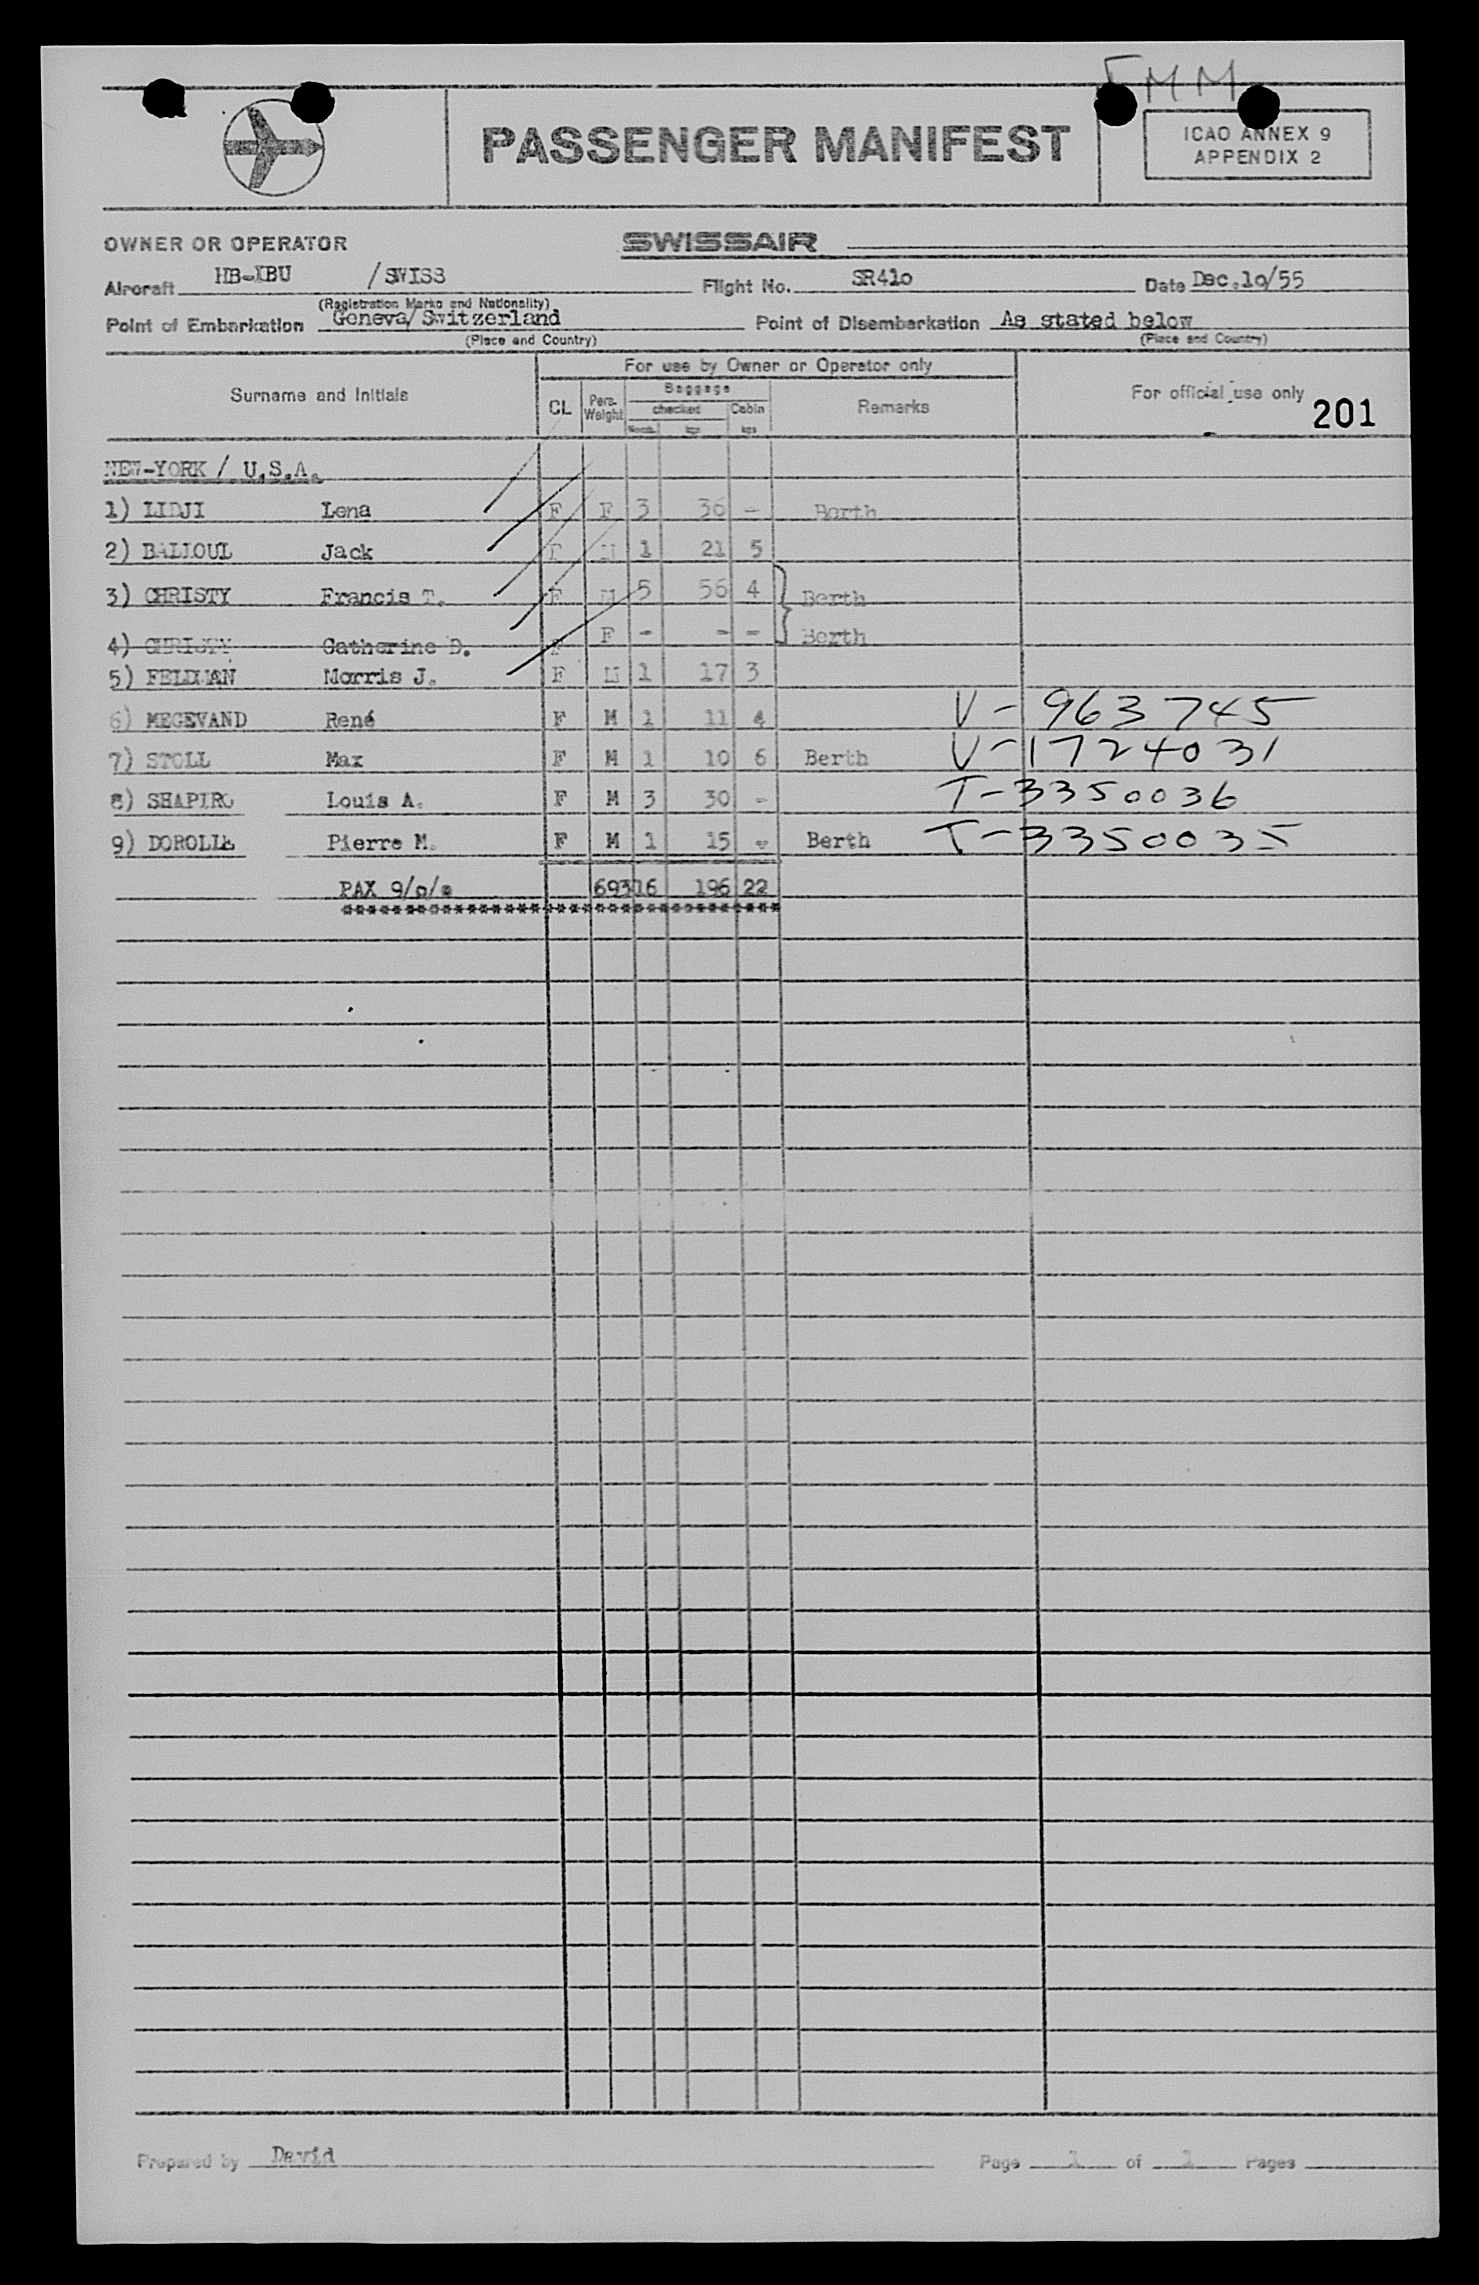 FMM
PASSENGER MANIFEST
ICAO ANNEX 9
APPENDIX 2
OWNER OR OPERATOR SWISSAIR
Aircraft HB-IBU /SWISS Flight No. SR41o Date Dec.1o/55
(Registration Marks and Nationality)
Point of Embarkation Geneva/Switzerland Point of Disembarkation As stated below
(Place and Country) (Place and Country)
For use by Owner or Operator only
Surname and Initials CL Pers. Weight Baggage checked Cabin Remarks For official use only
Numb. kgs kgs
201
NEW-YORK / U.S.A.
1) LIDJI Lena F F 3 36 - Berth
2) Jack F M 1 21 5
3) CHRISTY Francis T. F M 5 56 4 Berth
4) CHRISTY Catherine D. F F - - - Berth
5) FELDMAN Morris J. F M 1 17 3
6) MEGEVAND René F M 1 11 4 V-963745
7) STOLL Max F M 1 10 6 Berth V-1724031
8) SHAPIRO Louis A. F M 3 30 - T-3350036
9) DOROLLE Pierre M. F M 1 15 - Berth T-3350035
PAX 9/o/o 693 16 196 22
Prepared by David Page 1 of 1 Pages